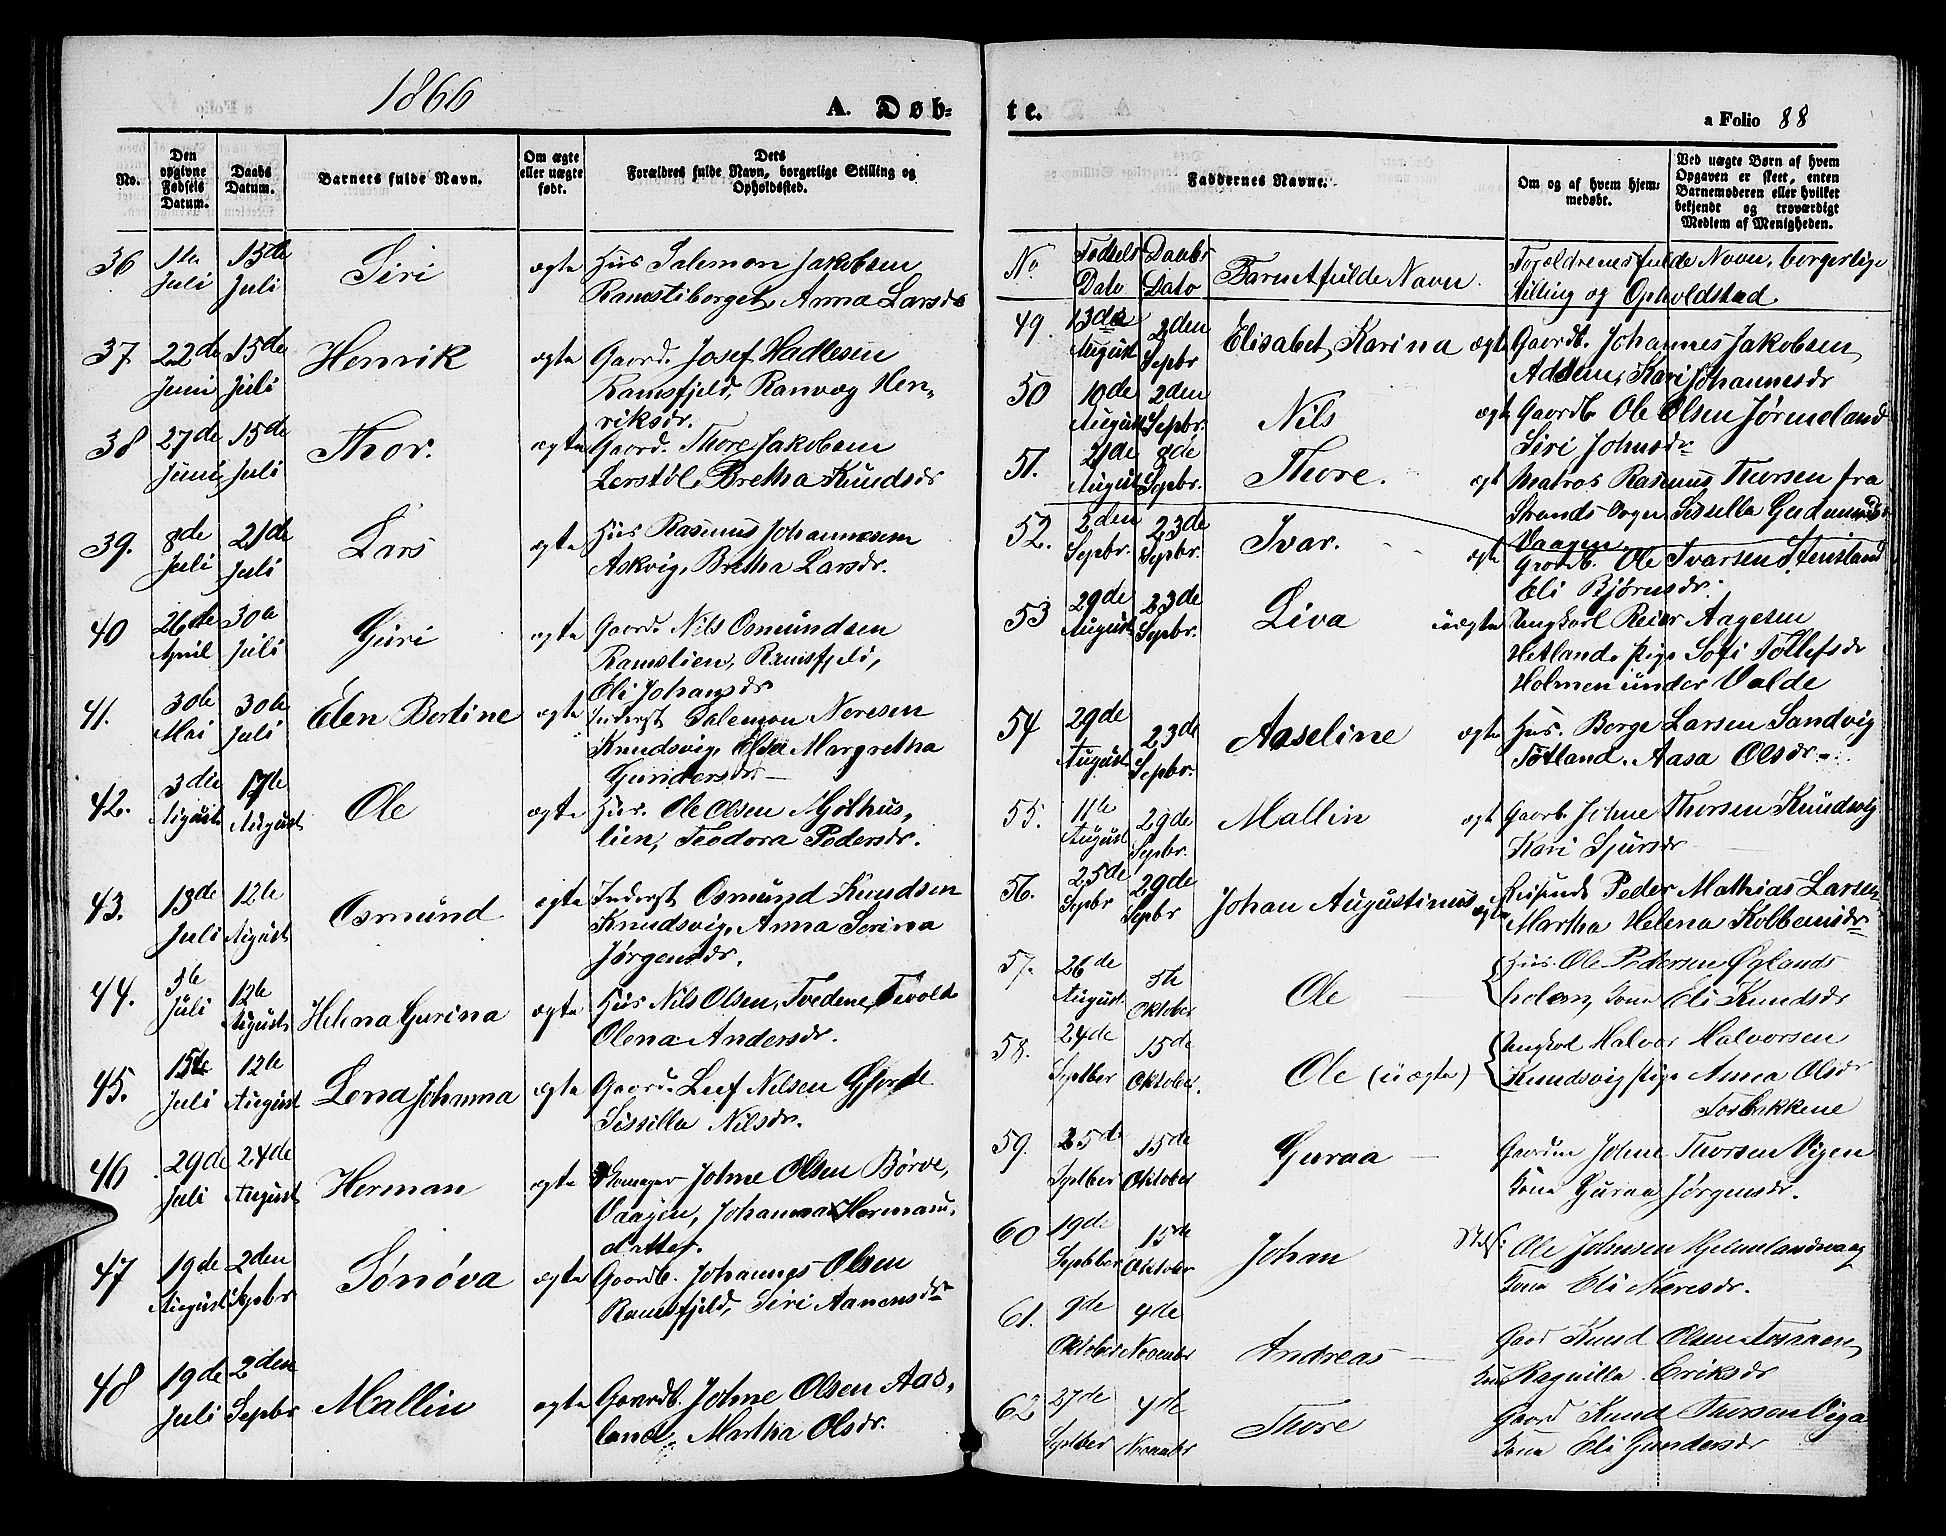 1866
A. Døb-
No.
Den opgivne Fødsels Datum.
Daabs Datum.
Barnets fulde Navn.
Om ægte eller uægte født.
Dets Forældres fulde Navn, borgerlige Stilling og Opholdssted.
36 1te Juli 15de Juli Siri ægte Hus Salemon Jakobsen
Ramstiborget, Anna Larsdr
37 22de Juni 15de Juli Henrik ægte Gaard. Josef Hadlesen
Ramsfjeld, Ranveg Hen-
riksdr.
38 27de Juni 15de Juli Thor. ægte Gaard. Thore Jakobsen
Lerstøl, Bretha Knudsdr
39. 8de Juli 21de Juli Lars ægte Hus Rasmus Johannesen
Askvig, Bretha Larsdr.
40 26de April 30te Juli Guri ægte Gaard. Nils Osmundsen
Ramslien, Ramsfjeld,
Eli Johansdr
41. 30te Mai 30te Juli Elen Bertine ægte Inderst Salemon Neresen
Knudsvig, Elsa Margretha
Gundersdr.
42. 3die August 12te August Ole ægte Hus. Ole Olsen Mølhus,
lien, Teodora Pedersdr.
43. 13de Juli 12te August Osmund ægte Inderst Osmund Knudsen
Knudsvig, Anna Serina
Jørgensdr.
44. 5te Juli 12te August Helena Gurina ægte Hus Nils Olsen, Tvedene,
Olena Andersdr.
45. 15de Juli 12te August Lena Johanna ægte Gaard. Leef Nilsen Gjerde
Sissilla Nilsdr.
46 29de Juli 24de August Herman ægte Johne Olsen Børve,
Vaagen, Johanna Herman,
datter.
47 19de August 2den Sepbr Sønøva ægte Gaardb. Johannes Olsen
Ramsfjeld, Siri Aanensdr
48 19de Juli 2den Sepbr Mallin ægte Gaardb. Johne Olsen Aas,
land, Martha Olsdr.
te.
a Folio 88
Faddernes Navne.
Om og af hvem hjem-
medøbt.
Ved uægte Børn af hvem
Opgaven er skeet, enten
Barnemoderen eller hvilket
bekjendt og troværdigt
Medlem af Menigheden.
No Fødsels Dato Daabs Dato Barnetfulde Navn. Forældrenes fulde Navn, borgerlige
Stilling og Opholdsted
49. 13de August 2den Sepbr Elisabet Karina ægte Gaardb. Johannes Jakobsen
Adslen, Kari Johannesdr
50 10de August 2den Sepbr. Nils ægte Gaardb Ole Olsen Jørmeland
Siri Johnsdr
51. 21de August 8de Sepbr. Thore. ægt Matros Rasmus Thorsen fra
Strands Sogn Sissella Gudmundsdr
Vaagen.
52. 2den Sepbr. 23de Sepbr. Ivar. ægte Gaardb. Ole Ivarsen Stensland
Eli Bjørnsdr.
53 29de August 23de Sepbr. Liva uægte Ungkarl Reier Aagesen
Hetland, Pige Sofi Tollefsdr
Holmen under Valde
54 29de August 23de Sepbr. Aaseline ægte Hus. Borge Larsen Sandvig
Tøtland. Aasa Olsdr.
55. 11te August 29de Sepbr. Mallin ægt Gaardb. Johne Thorsen Knudsvig
Kari Sjursdr
56. 25de Sepbr 29de Sepbr Johan Augustinus ægte Reisende Peder Mathias Larsen
Martha Helena Kolbensdr
57. 26de August 5te Oktober Ole Hus. Ole Pedersen Øglands
holen, Kona Eli Knudsdr
58. 24de Septber 15de Oktober. Ole (uægte) Ungkarl Halvor Halvorsen
Knudsvig Pige Anna Olsdr
Fosbekkene
59. 25de Septber 15de Oktober Guraa Gaardm Johne Thorsen Vigen
Kona Guraa Jørgensdr.
60 19de Septber 15de Oktober Johan Ole Johnsen Hjelmelandsvaag
Kona Eli Neresdr.
61. 9de Oktober 4de Novenbr Andreas Gaard Knud Olsen
Kona Ragnilla Eriksdr
62 27de Septber 4de Novenbr Thore Gaard Knud Thorsen Viga
Kona Eli Gundersdr